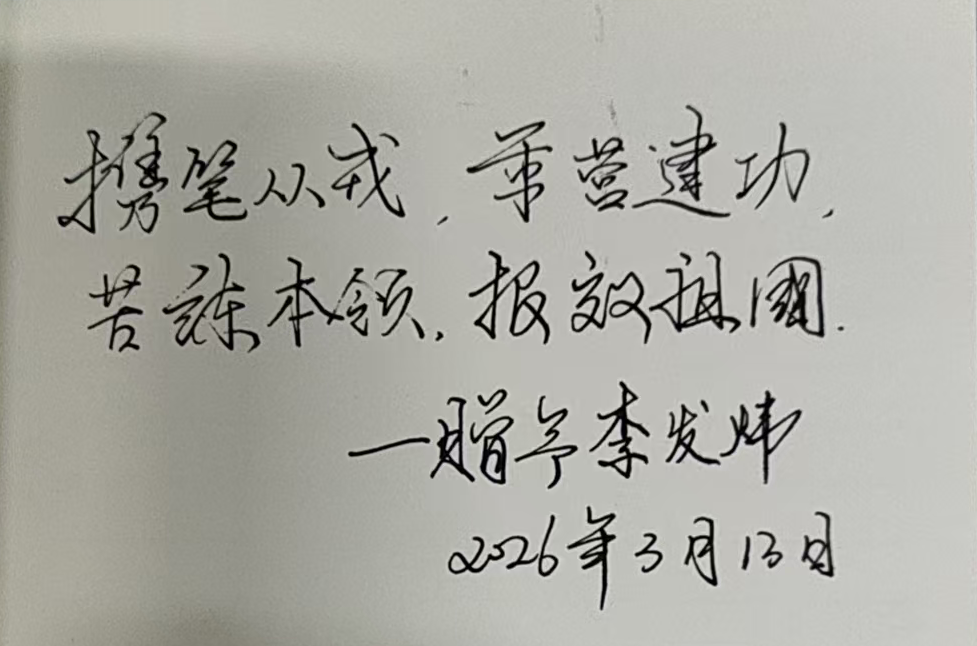 携笔从戎,军营建功,
苦练本领,报效祖国.
—赠予李发炜
2026年3月13日